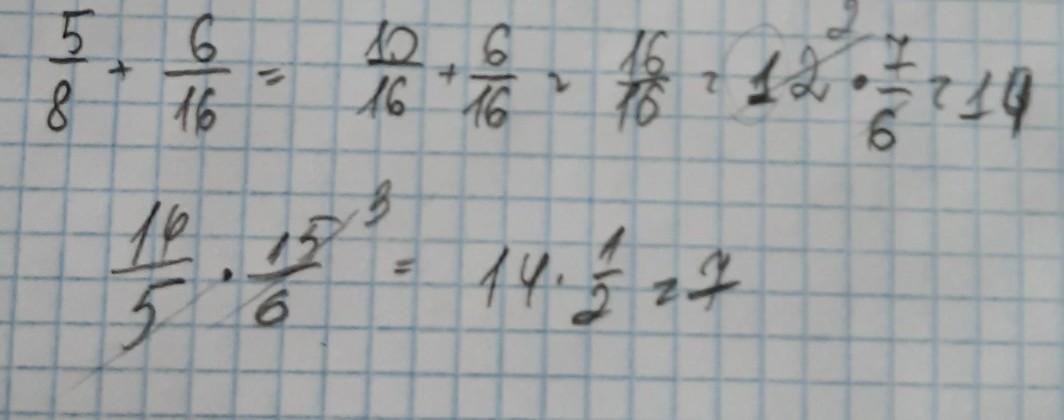 5/8 + 6/16 = 10/16 + 6/16 = 16/16 = 12 2 · 7/6 = 14
14/5 · 15/6 3 = 14 · 1/2 = 7